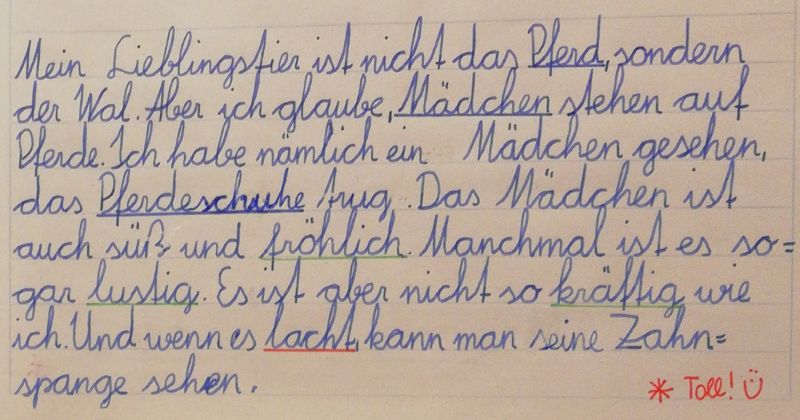 Mein Lieblingstier ist nicht das Pferd, sondern
der Wal. Aber ich glaube, Mädchen stehen auf
Pferde. Ich habe nämlich ein Mädchen gesehen,
das Pferdeschuhe trug. Das Mädchen ist
auch süß und fröhlich. Manchmal ist es so=
gar lustig. Es ist aber nicht so kräftig wie
ich. Und wenn es lacht, kann man seine Zahn=
spange sehen.
* Toll! Ü